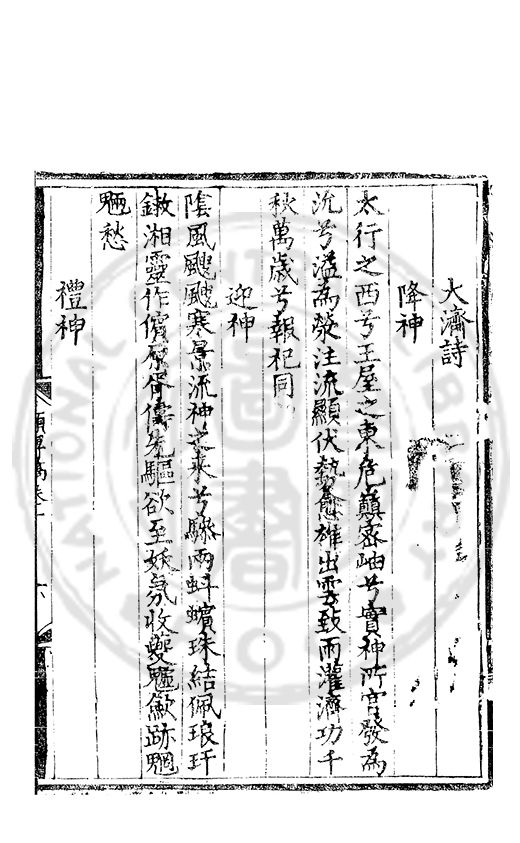 大濟詩
降神
太行之西兮王屋之東危巔密岫兮實神所宮發為
沇兮溢為滎注流顯伏勢愈雄出雲致雨灌濟功千
秋萬歲兮報祀同
迎神
陰風颼颼寒景流神之來兮驂兩虯蠙珠結佩琅玕
鏉湘靈作儐 胥儔先驅欲至妖氛收夔魖斂跡魍
魎愁
禮神